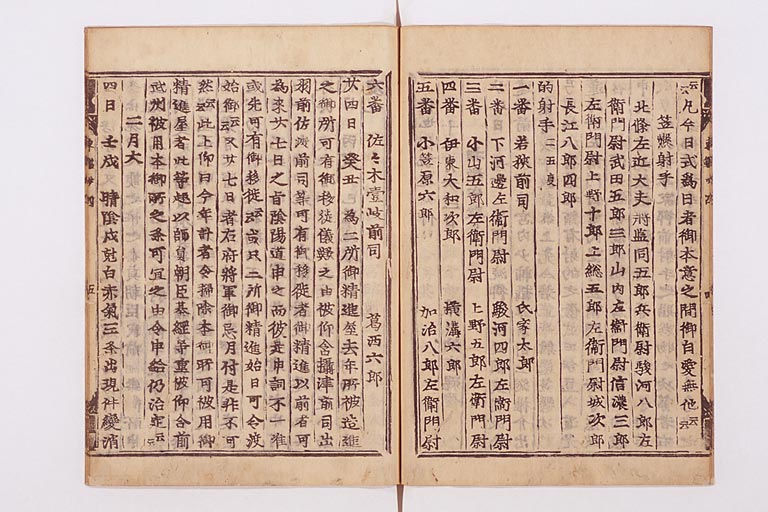 云々凡今日式為日者御本意之間御自愛無他云々
笠懸射手
北條左近大夫將監同五郎兵衛尉駿河八郎左
衛門尉武田五郎三郎山内左衛門尉信濃三郎
左衛門尉上野十郎上総五郎左衛門尉城次郎
長江八郎四郎
的射手 二五度
一番 若狭前司 氏家太郎
二番 下河邊左衛門尉 駿河四郎左衛門尉
三番 小山五郎左衛門尉 上野五郎左衛門尉
四番 伊東大和次郎 横溝六郎
五番 小笠原六郎 加治八郎左衛門尉
六番 佐々木壹岐前司 葛西六郎
廿四日 癸丑 為二所御精進至去年所被造進
之御所可有御移徙儀歟之由被仰含攝津前司出
羽前司佐渡前司等可有御移徙者御精進以前者可
為來廿七日之旨陰陽道申之而彼是申詞不准
或先可有御移徙云々或只二所御精進始日可令渡
始御云々又廿七日者右府將軍御忌月付是非不可
然云々此上仰曰今年計者令掃除本御所可被用御
精進屋者此等趣以師員朝臣基綱等重被仰合前
武州被用本御所之条可宜之由令申給仍治定云々
二月大
四日 壬戌 晴陰戌尅白赤氣三条出現件變消